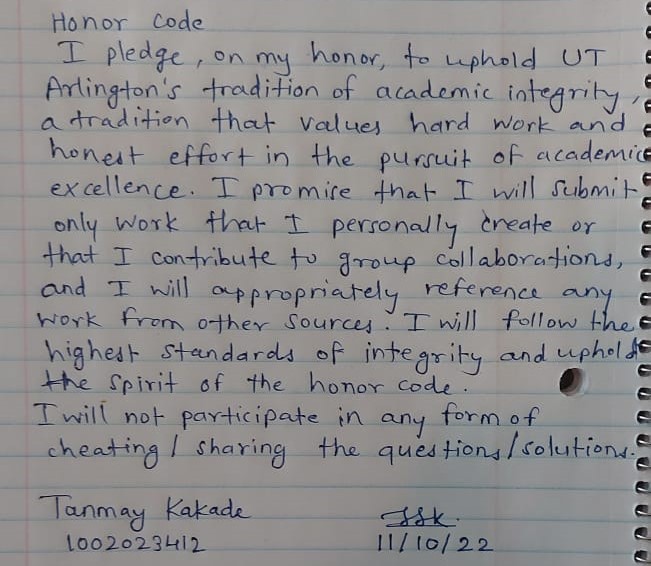 Honor Code
I pledge, on my honor, to uphold UT
Arlington's tradition of academic integrity,
a tradition that values hard work and
honest effort in the pursuit of academic
excellence. I promise that I will submit
only work that I personally create or
that I contribute to group collaborations,
and I will appropriately reference any
work from other sources. I will follow the
highest standards of integrity and uphold
the spirit of the honor code.
I will not participate in any form of
cheating / sharing the questions/solutions.
Tanmay Kakade
1002023412 11/10/22